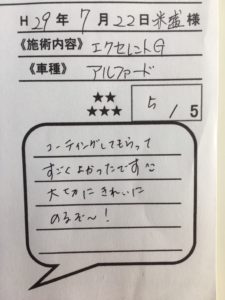 H 29年 7月 22日 米盛 様
《施術内容》 エクセレントG
《車種》 アルファード
★★
★★★
5 / 5
コーティングしてもらって
すごくよかったです^^
大切にきれいに
のるぞ〜!